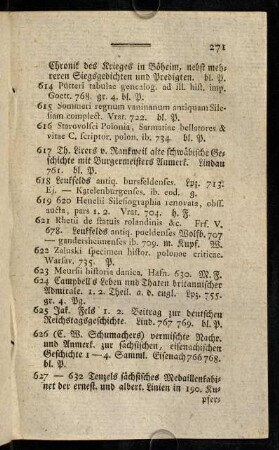 271
Chronik des Krieges in Böheim, nebst meh-
reren Siegsgedichten und Predigten. bl. P.
614 Pütteri tabulae genealog. ad ill. hist. imp.
Goett. 768. gr. 4. bl. P.
615 Sommeri regnum vannianum antiquam Sile-
siam complect. Vrat. 722. bl. P.
616 Starovolsci Polonia, Sarmatiae bellatores &
vitae C. scriptor. polon. ib. 734. bl. P.
617 Th. Lirers v. Rankweil alte schwäbische Ge-
schichte mit Burgermeisters Anmerk. Lindau
761. bl. P.
618 Leukfelds antiq. bursfeldenses. Lpz. 713.
Ej. — Katelenburgenses, ib. eod. g.
619 620 Henelii Silesiographia renovata, obss.
aucta, pars 1. 2. Vrat. 704. h. F.
621 Rhetii de statuis rolandinis &c. Frf. V.
678. Leukfelds antiq. poeldenses Wolfb. 707
— gandersheimenses ib. 709. m. Kupf. W.
622 Zalnski specimen histor. polonae criticae.
Warsav. 735. P.
623 Meursii historia danica, Hafn. 630. M. F.
624 Campbell's Leben und Thaten britannischer
Admirale. 1. 2. Theil. a. d. engl. Lpz. 755.
gr. 4. Pg.
625 Jak. Fels 1. 2. Beitrag zur deutschen
Reichstagsgeschichte. Lind. 767 769. bl. P.
626 (E. W. Schumachers) vermischte Nachr.
und Anmerk. zur sächsischen, eisenachischen
Geschichte 1—4. Samml. Eisenach 766 768.
bl. P.
627 — 632 Tenzels sächsisches Medaillenkabi-
net der ernest. und albert. Linien in 190. Ku-
pfer-